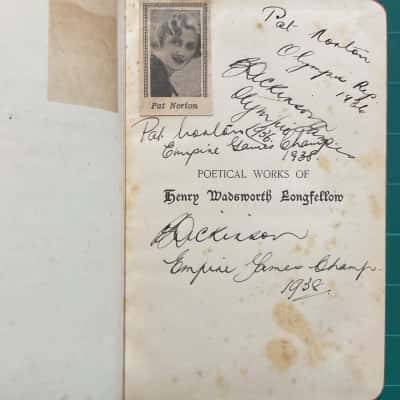 Pat Norton
Pat Norton
Olympic Rep.
1936
B Dickinson
Olympic
Pat Norton 1936.
Empire Games Champ
1938.
POETICAL WORKS OF
Henry Wadsworth Longfellow
B Dickinson
Empire Games Champ.
1938.